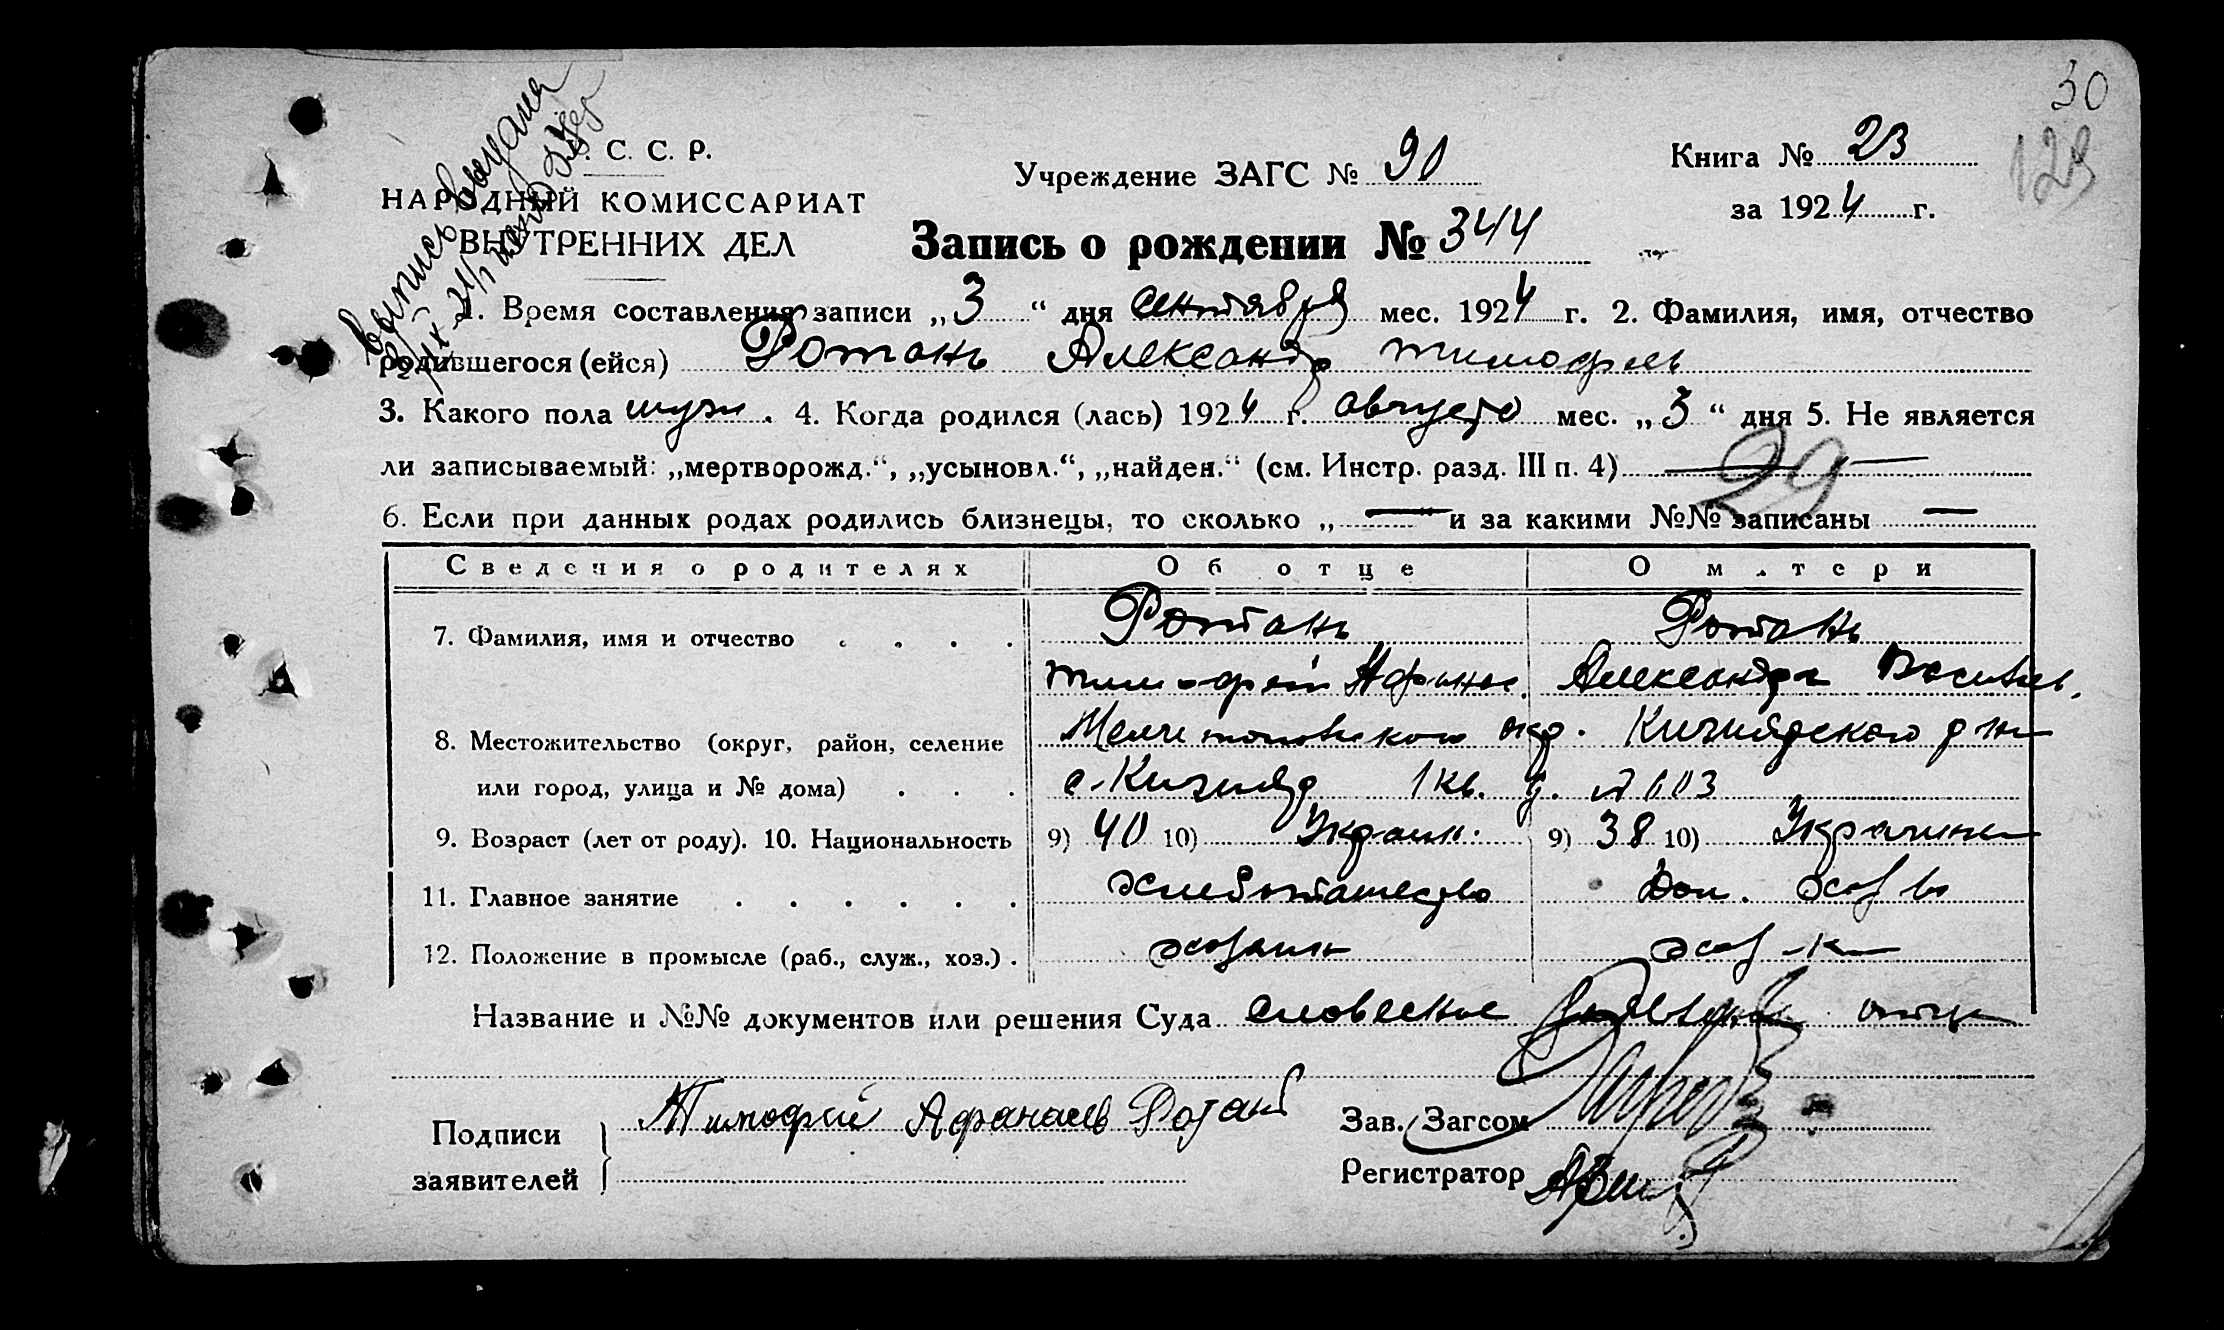 30
129
Выпись выдана
. С. С. Р.
НАРОДНЫЙ КОМИССАРИАТ
ВНУТРЕННИХ ДЕЛ
Учреждение ЗАГС № 90
Книга № 23
за 1924 г.
Запись о рождении № 344
1. Время составления записи „3“ дня сентября мес. 1924 г. 2. Фамилия, имя, отчество
родившегося (ейся) Ротань Александр Тимофеев
3. Какого пола муж. 4. Когда родился (лась) 1924 г. августа мес. „3“ дня 5. Не является
ли записываемый: „мертворожд.“, „усыновл.“, „найден.“ (см. Инстр. разд. III п. 4) —
29
6. Если при данных родах родились близнецы, то сколько „—“ и за какими №№ записаны —
Сведения о родителях Об отце О м.тери
7. Фамилия, имя и отчество . . . . Ротань Ротань
Тимофей Афанас. Александра Василь.
8. Местожительство (округ, район, селение Мелитопольского окр. Кизиярского р-на
или город, улица и № дома) . . . с. Кизияр 1 кв. д. № 603
9. Возраст (лет от роду). 10. Национальность 9) 40 10) Украин. 9) 38 10) Украинка
11. Главное занятие . . . . . . хлебопашество Дом. хоз-во
12. Положение в промысле (раб., служ., хоз.) . хозяин хоз-ка
Название и №№ документов или решения Суда словесное заявление отца
Подписи
заявителей
Тимофей Афанасьев Ротань
Зав. Загсом
Регистратор